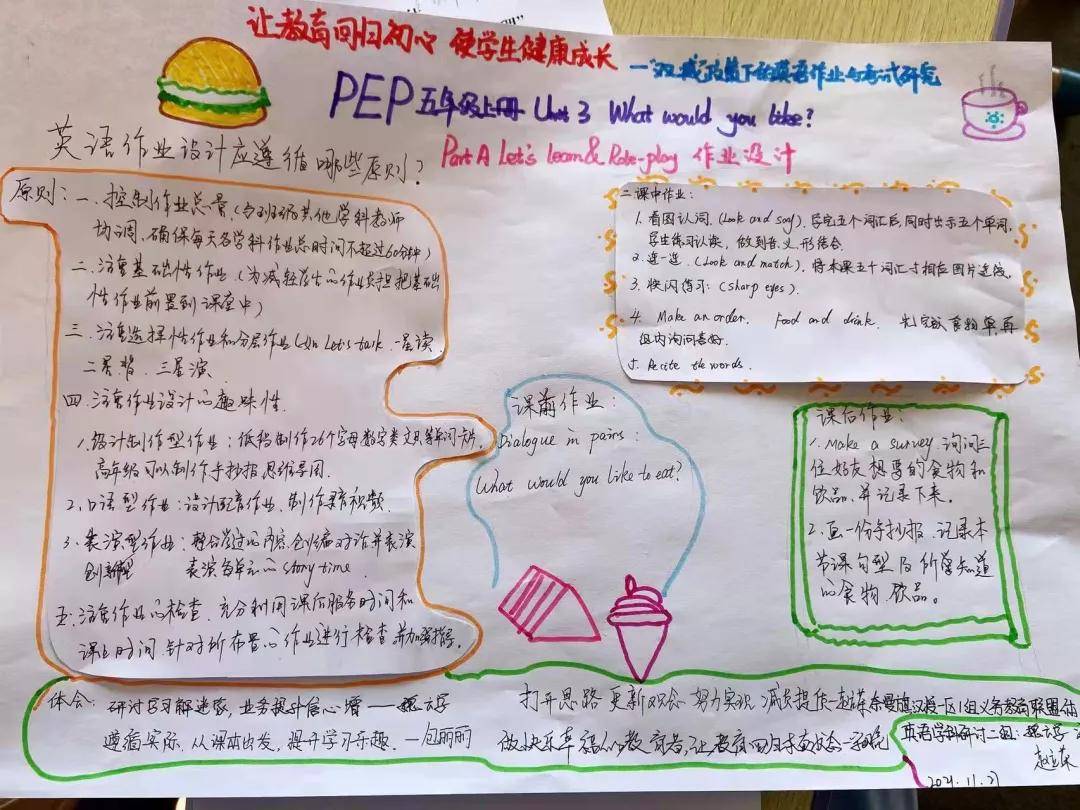 让教育回归初心 使学生健康成长 —“双减”政策下的英语作业与考试研究
PEP五年级上册 Unit 3 What would you like?
英语作业设计应遵循哪些原则?
Part A Let's learn & Role-play 作业设计
原则: 一、控制作业总量(与班级其他学科教师
协调,确保每天各学科作业总时间不超过60分钟)
二、注重基础性作业(为减轻学生的作业负担把基础
性作业前置到课堂中)
三、注重选择性作业和分层作业 Let's talk 一星读
二星背 三星演
四、注重作业设计的趣味性
1.设计制作型作业:低档制作26个字母数字类文具等单词卡片,
高年级可以制作手抄报 思维导图
2.口语型作业:设计配音作业、制作录音和视频
3.表演型作业:整合学过的内容,创编对话并表演
表演各单元的 story time
五、注重作业的检查 充分利用课后服务时间和
课上时间 针对所布置的作业进行检查并加强指导。
二课中作业:
1.看图认词.(Look and say).学完五个词汇后,同时出示五个单词,
学生练习认读,做到音、义、形结合.
2.连一连.(Look and match).将本课五个词汇与相应图片连线.
3.快闪练习:(Sharp eyes).
4. Make an order. Food and drink. 先完成食物单,再
组内询问喜好.
5. Recite the words.
课前作业:
Dialogue in pairs:
What would you like to eat?
课后作业:
1.Make a survey.询问三
位好友想要的食物和
饮品,并记录下来。
2.画一份手抄报,记录本
节课句型及所学知道
的食物、饮品。
体会: 研讨学习解迷家,业务提升信心增
遵循实际,从课本出发,提升学习乐趣。—包丽丽
打开思路 更新观念 努力实识 减负提质
做快乐幸福的教育者,让教育回归
英语学科研讨二组:
2021.11.21